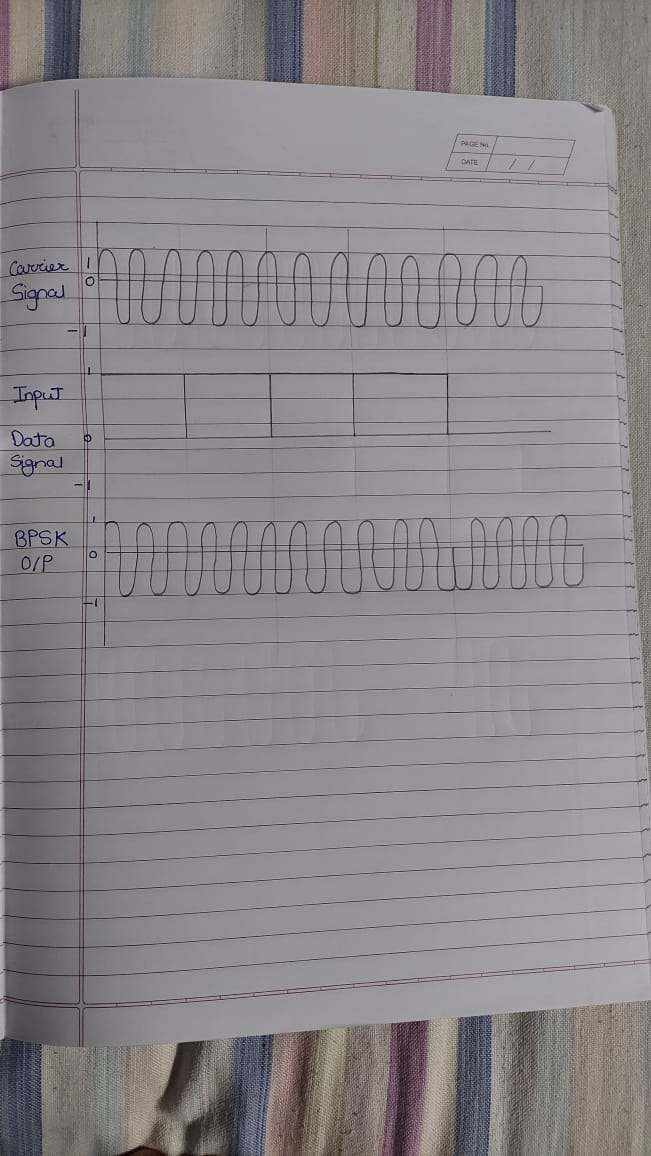 PAGE No.
DATE / /
Carrier
Signal
1
0
-1
Input
Data
Signal
1
0
-1
BPSK
O/P
1
0
-1